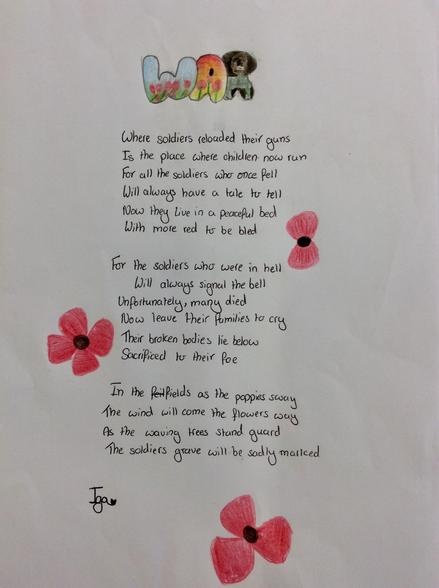 WAR
Where soldiers reloaded their guns
Is the place where children now run
For all the soldiers who once fell
Will always have a tale to tell
Now they live in a peaceful bed
With more red to be bled
For the soldiers who were in hell
Will always signal the bell
Unfortunately, many died
Now leave their families to cry
Their broken bodies lie below
Sacrificed to their foe
In the fields as the poppies sway
The wind will come the flowers way
As the waving trees stand guard
The soldiers grave will be sadly marked
Iga